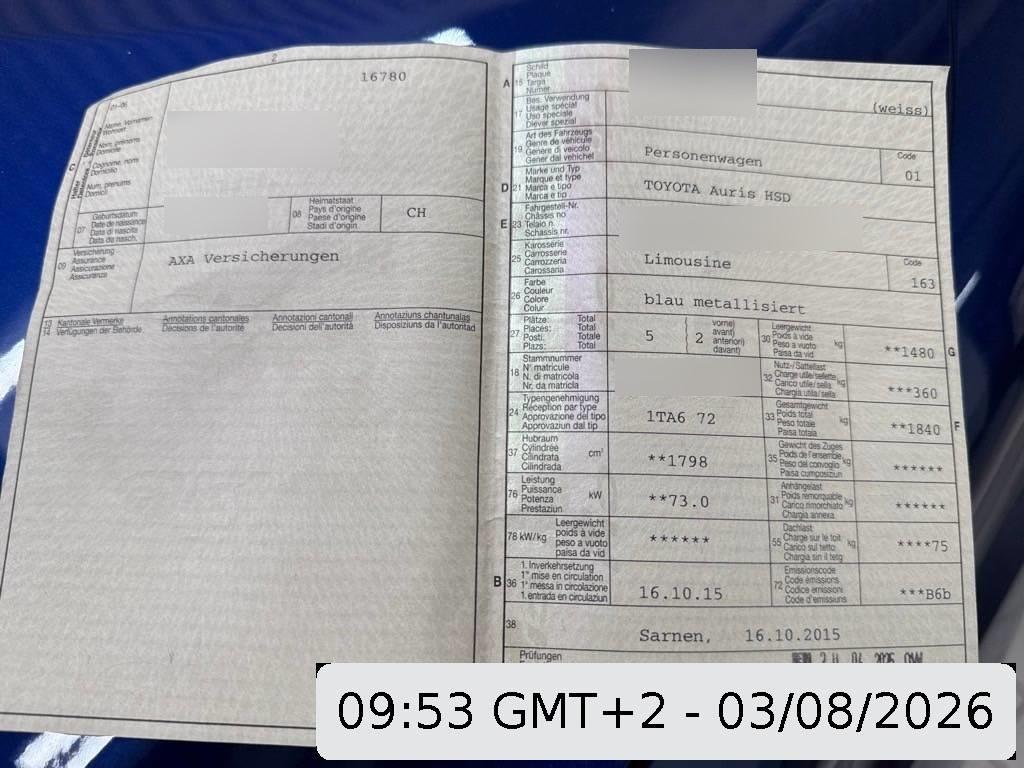 2
16780
01-06
Name, Vornamen
Wohnort
Nom, prénoms
Domicile
Cognome, nomi
Domicilio
Num, prenums
Domicil
C
07
Geburtsdatum
Date de naissance
Data di nascita
Data da nasch.
08
Heimatstaat
Pays d'origine
Paese d'origine
Stadi d'origin
CH
09
Versicherung
Assurance
Assicurazione
Assicuranza
AXA Versicherungen
13
14
Kantonale Vermerke
Verfügungen der Behörde
Annotations cantonales
Décisions de l'autorité
Annotazioni cantonali
Decisioni dell'autorità
Annotaziuns chantunalas
Disposiziuns da l'autoritad
A 15
Schild
Plaque
Targa
Numer
(weiss)
17
Bes. Verwendung
Usage spécial
Uso speciale
Diever spezial
19
Art des Fahrzeugs
Genre de véhicule
Genere di veicolo
Gener dal vehichel
Personenwagen
Code
01
D 21
Marke und Typ
Marque et type
Marca e tipo
Marca e tip
TOYOTA Auris HSD
E 23
Fahrgestell-Nr.
Châssis no
Telaio n.
Schassis nr.
25
Karosserie
Carrosserie
Carrozzeria
Carossaria
Limousine
Code
163
26
Farbe
Couleur
Colore
Colur
blau metallisiert
27
Plätze: Total
Places: Total
Posti: Totale
Plazs: Total
5
2
vorne)
avant)
anteriori)
davant)
30
Leergewicht
Poids à vide
Peso a vuoto
Paisa da vid
kg
**1480
G
18
Stammnummer
N° matricule
N. di matricola
Nr. da matricla
32
Nutz-/Sattellast
Charge utile/sellette
Carico utile/sella
Chargia utila/sella
kg
***360
24
Typengenehmigung
Réception par type
Approvazione del tipo
Approvaziun dal tip
1TA6 72
33
Gesamtgewicht
Poids total
Peso totale
Paisa totala
kg
**1840
F
37
Hubraum
Cylindrée
Cilindrata
Cilindrada
cm³
**1798
35
Gewicht des Zuges
Poids de l'ensemble
Peso del convoglio
Paisa cumposiziun
kg
******
76
Leistung
Puissance
Potenza
Prestaziun
kW
**73.0
31
Anhängelast
Poids remorquable
Carico rimorchiato
Chargia annexa
kg
******
78 kW/kg
Leergewicht
poids à vide
peso a vuoto
paisa da vid
******
55
Dachlast
Charge sur le toit
Carico sul tetto
Chargia sin il tetg
kg
****75
B 36
1. Inverkehrsetzung
1re mise en circulation
1a messa in circolazione
1. entrada en circulaziun
16.10.15
72
Emissionscode
Code émissions
Codice emissioni
Code d'emissiuns
***B6b
38
Sarnen, 16.10.2015
Prüfungen
09:53 GMT+2 - 03/08/2026